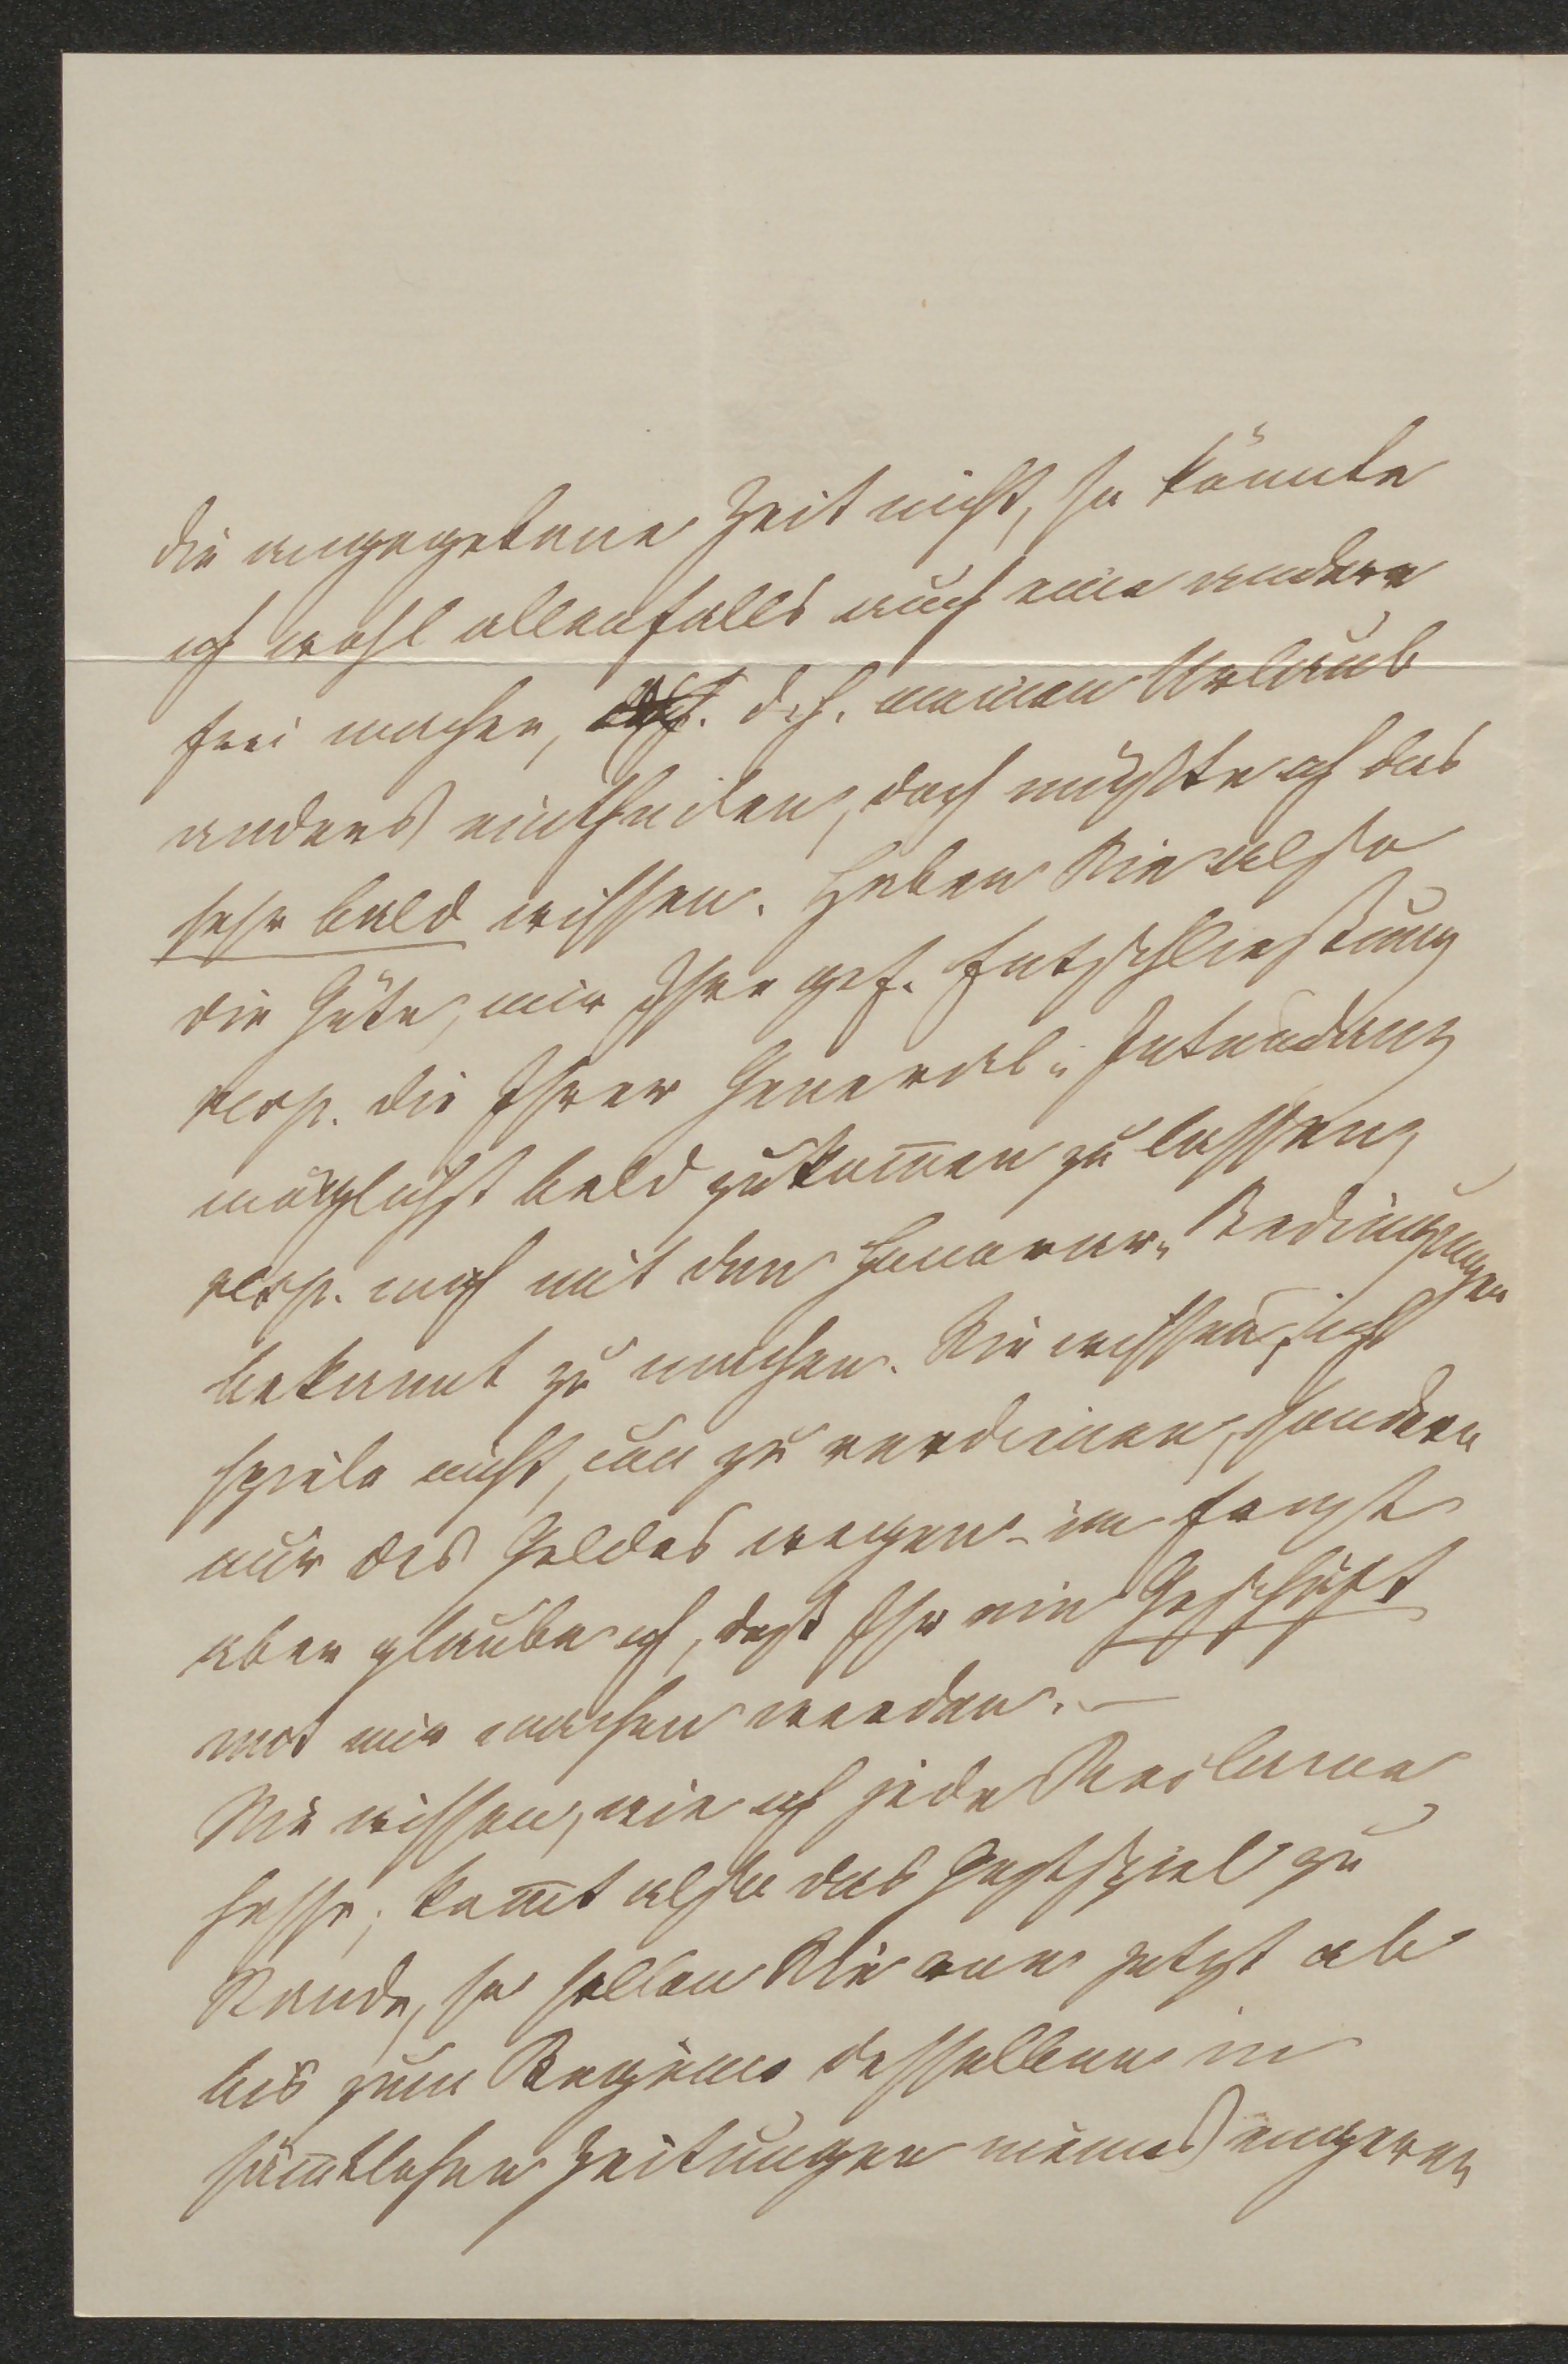 die angegebene Zeit nicht, so könnte
ich wohl allenfalls auch eine andere
frei machen, d. h. meinen Urlaub
anders eintheilen, doch müßte ich das
sehr bald wissen. Haben Sie also
die Güte, mir Ihre gef. Entschließung
resp. die Ihrer General-Intendanz
möglichst bald zukom̅en zu lassen,
resp. mich mit den Honorar-Bedingungen
bekannt zu machen. Sie wissen, ich
spiele nicht, um zu verdienen, sondern
nur des Geldes wegen – im Ernste
aber glaube ich, daß Ihr ein Geschäft
mit mir machen werdet. –
Sie wissen, wie ich jede Reclame
hasse; kom̅t also das Gastspiel zu
Stande, so sollen Sie von jetzt ab
bis zum Beginne desselben in
säm̅tlichen Zeitungen meines engeren